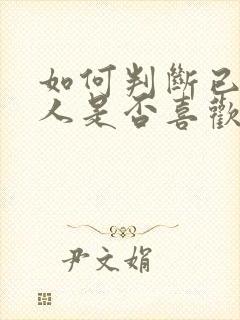 如何判斷已
人是否喜歡
尹文娟